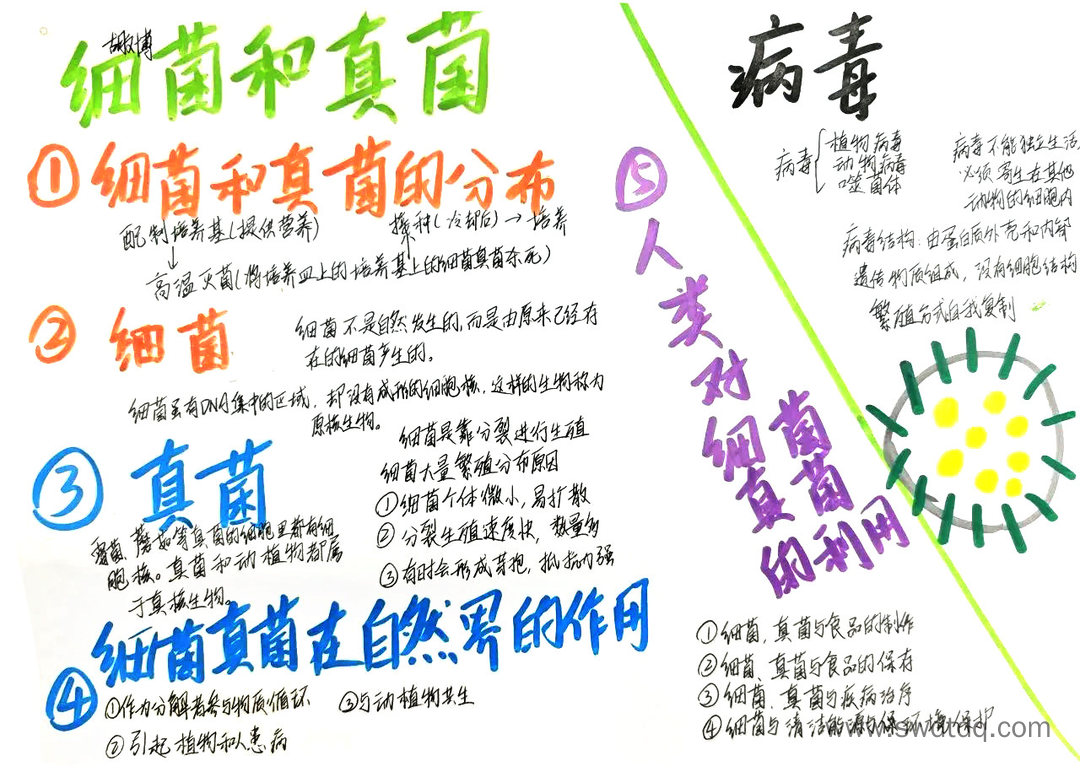 细菌和真菌
①细菌和真菌的分布
配制培养基(提供营养)
接种(冷却后)→培养
高温灭菌(将培养皿上的培养基上的细菌真菌杀死)
②细菌
细菌不是自然发生的,而是由原来已经存
在的细菌产生的。
细菌虽有DNA集中的区域,却没有成形的细胞核,这样的生物称为
原核生物。
细菌是靠分裂进行生殖
细菌大量繁殖分布原因
①细菌个体微小,易扩散
②分裂生殖速度快,数量多
③有时会形成芽孢,抵抗力强
③真菌
霉菌、蘑菇等真菌的细胞里都有细
胞核。真菌和动植物都属
于真核生物。
④细菌真菌在自然界的作用
①作为分解者参与物质循环
③与动植物共生
②引起植物和人患病
⑤人类对
细菌
真菌
的利用
①细菌,真菌与食品的制作
②细菌、真菌与食品的保存
③细菌、真菌与疾病治疗
④细菌与清洁能源和环境保护
病毒
病毒
植物病毒
动物病毒
噬菌体
病毒不能独立生活,
必须寄生在其他
动物的细胞内
病毒结构:由蛋白质外壳和内部
遗传物质组成,没有细胞结构
繁殖方式自我复制